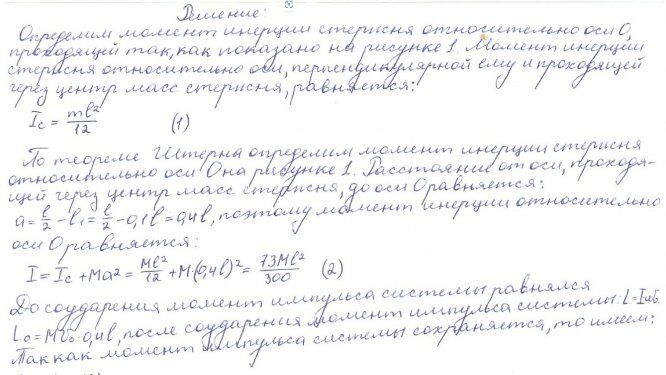 Решение:
Определим момент инерции стержня относительно оси О,
проходящей так, как показано на рисунке 1. Момент инерции
стержня относительно оси, перпендикулярной ему и проходящей
через центр масс стержня, равняется:
I_c = ml²/12 (1)
По теореме Штерна определим момент инерции стержня
относительно оси О на рисунке 1. Расстояние от оси, проходя-
щей через центр масс стержня, до оси О равняется:
a = l/2 - l₁ = l/2 - 0,1l = 0,4l, поэтому момент инерции относительно
оси О равняется:
I = I_c + Ma² = Ml²/12 + M·(0,4l)² = 73Ml²/300 (2)
До соударения момент импульса системы равнялся
L₀ = MV₀·0,4l, после соударения момент импульса системы: L = I
Так как момент импульса системы сохраняется, то имеем: